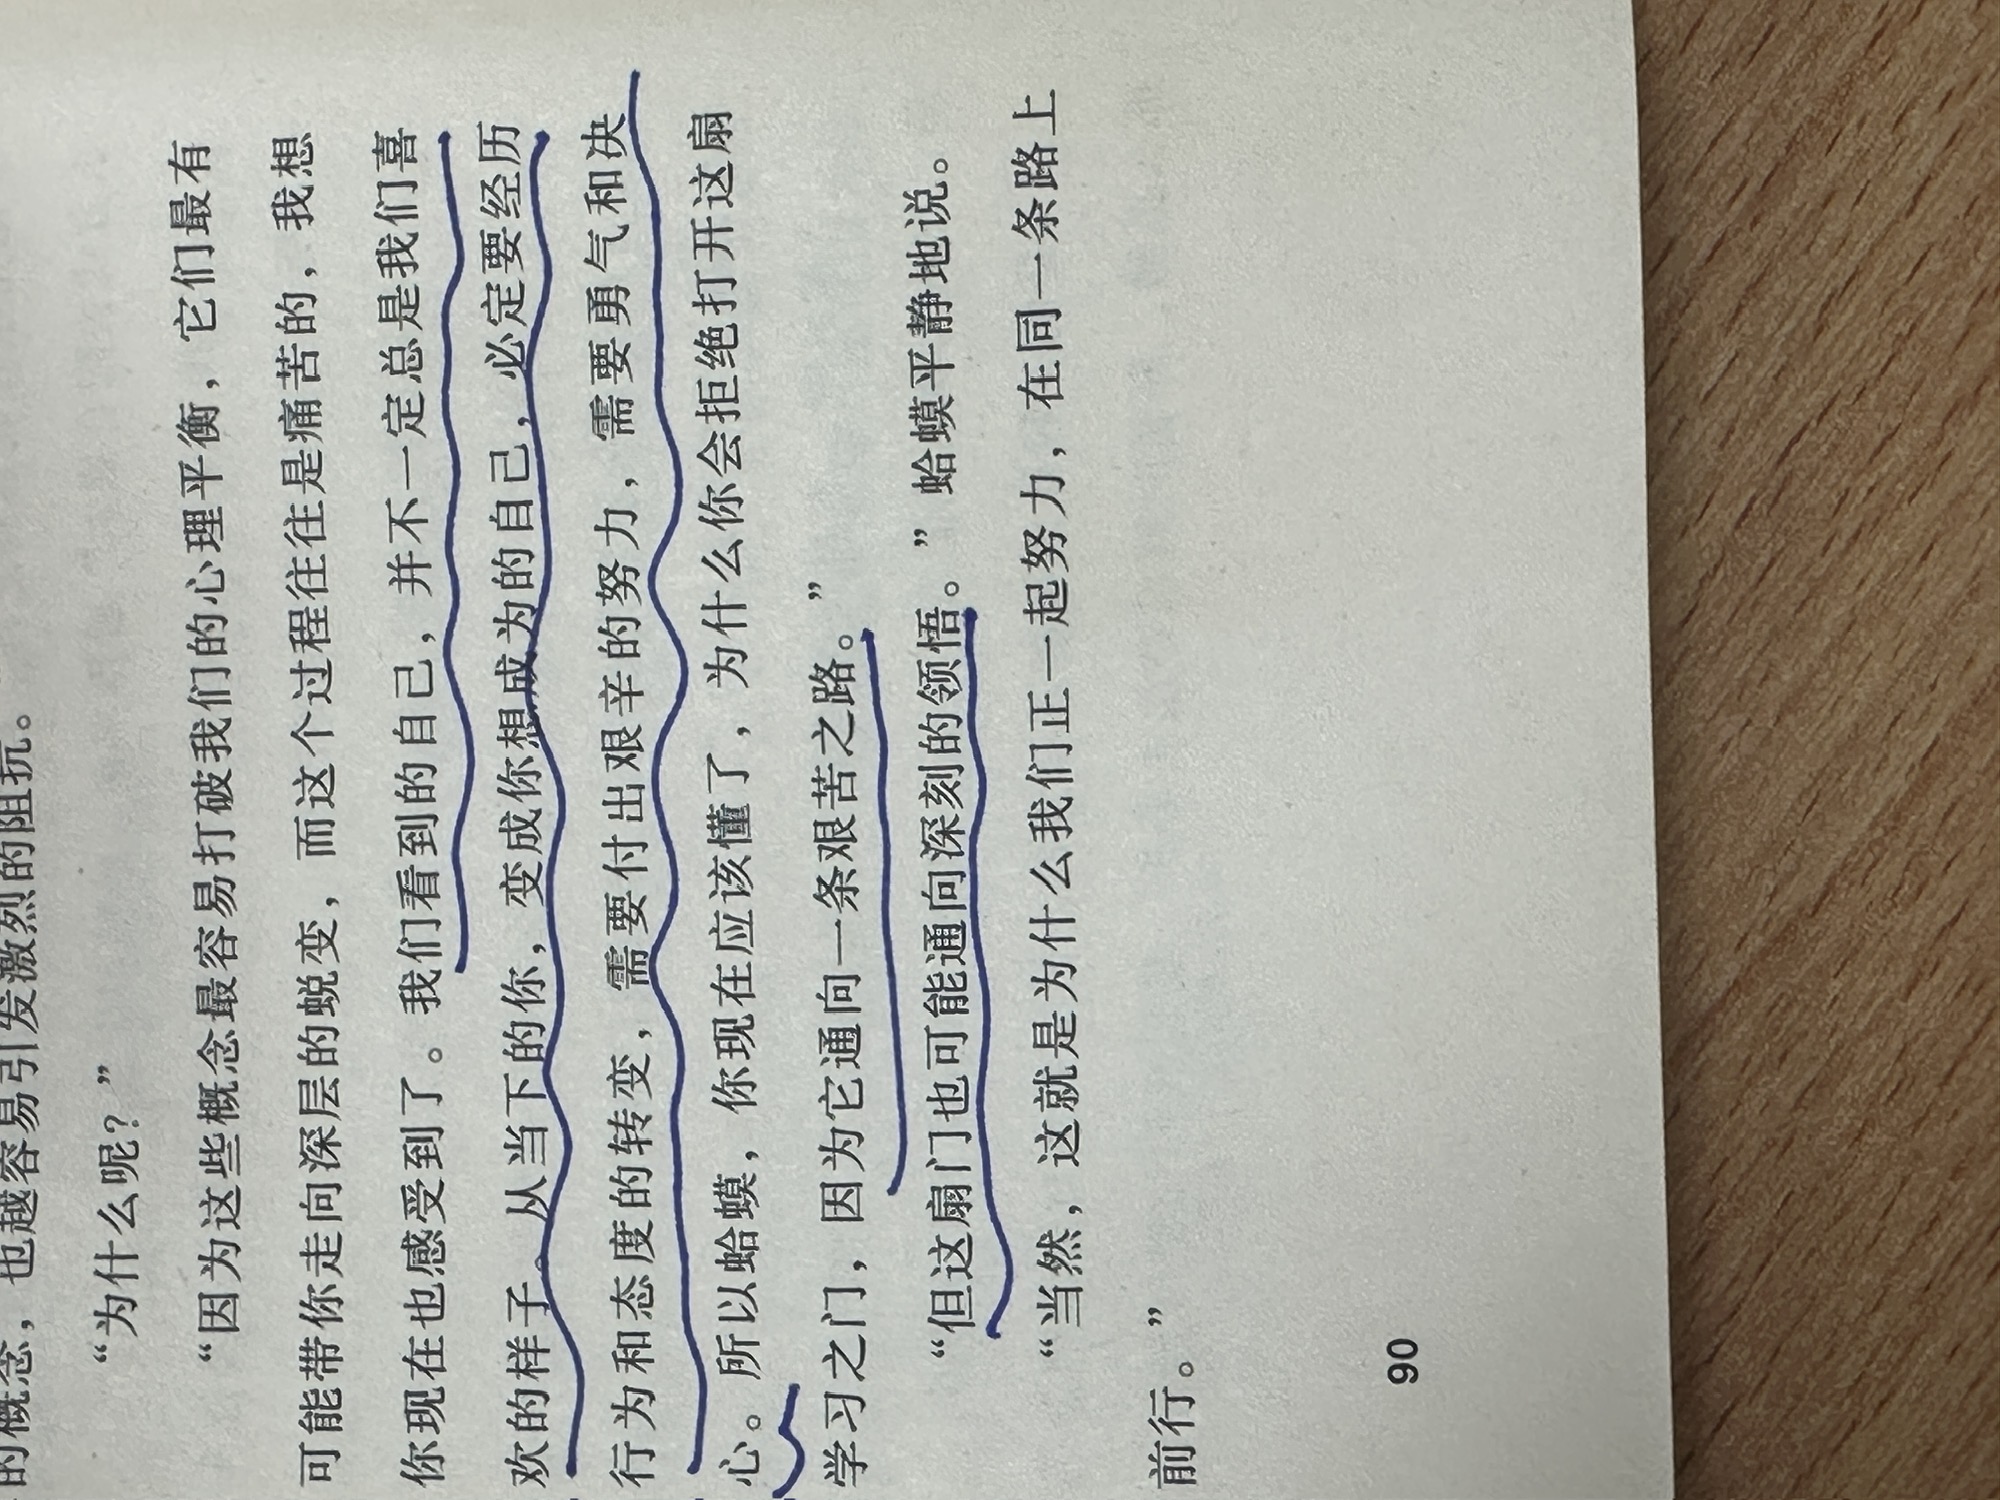 的概念，也越容易引发激烈的阻抗。
“为什么呢？”
“因为这些概念最容易打破我们的心理平衡，它们最有
可能带你走向深层的蜕变，而这个过程往往是痛苦的，我想
你现在也感受到了。我们看到的自己，并不一定总是我们喜
欢的样子。从当下的你，变成你想成为的自己，必定要经历
行为和态度的转变，需要付出艰辛的努力，需要勇气和决
心。所以蛤蟆，你现在应该懂了，为什么你会拒绝打开这扇
学习之门，因为它通向一条艰苦之路。”
“但这扇门也可能通向深刻的领悟。”蛤蟆平静地说。
“当然，这就是为什么我们正一起努力，在同一条路上
前行。”
90